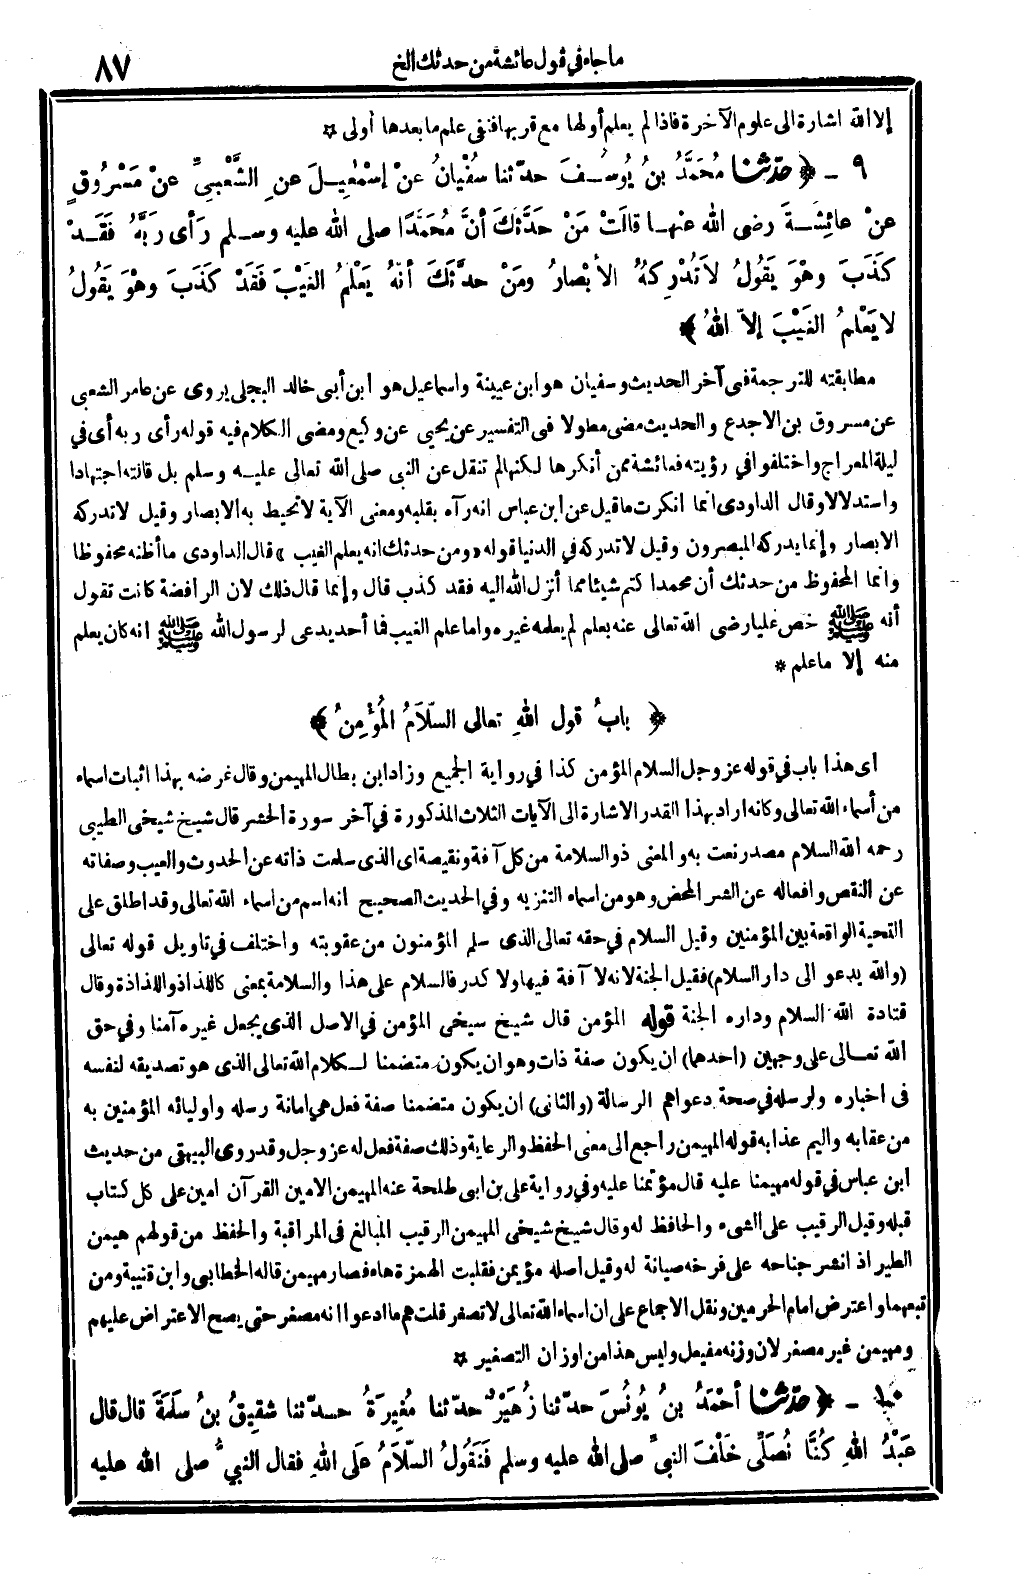 ما جاء في قول عائشة من حدثك الخ
٨٧
إلا الله اشارة الى علوم الآخرة فاذا لم يعلم أولها مع قربها فنفى علم ما بعدها أولى *
٩ - ﴿ حدّثنا مُحَمَّدُ بنُ يُوسُفَ حدّثنا سُفْيانُ عنْ إسْمٰعِيلَ عنِ الشَّعْبيِّ عنْ مَسْرُوقٍ
عنْ عائِشَةَ رضى الله عنها قالَتْ مَنْ حَدَّثَكَ أنَّ مُحَمَّدًا صلى الله عليه وسلم رَأى رَبَّهُ فَقَدْ
كَذَبَ وهْوَ يَقُولُ لا تُدْرِكهُ الأبْصارُ ومَنْ حدَّثَكَ أنّهُ يَعْلَمُ الغَيْبَ فَقَدْ كَذَبَ وهْوَ يَقُولُ
لا يَعْلَمُ الغَيْبَ إلاّ اللهُ ﴾
مطابقته للترجمة فى آخر الحديث وسفيان هو ابن عيينة واسماعيل هو ابن أبى خالد البجلى يروى عن عامر الشعبى
عن مسروق بن الاجدع والحديث مضى مطولا فى التفسير عن يحيى عن وكيع ومضى الكلام فيه قوله رأى ربه أى في
ليلة المعراج واختلفوا في رؤيته فعائشة ممن أنكرها لكنها لم تنقل عن النبى صلى الله تعالى عليه وسلم بل قالته اجتهادا
واستدلالا وقال الداودى انما انكرت ما قيل عن ابن عباس انه رآه بقلبه ومعنى الآية لا تحيط به الابصار وقيل لا تدركه
الابصار وإنما يدركه المبصرون وقيل لا تدركه في الدنيا قوله «ومن حدثك انه يعلم الغيب» قال الداودى ما أظنه محفوظا
وانما المحفوظ من حدثك أن محمدا كتم شيئا مما أنزل الله اليه فقد كذب قال وإنما قال ذلك لان الرافضة كانت تقول
أنه ﷺ خص عليا رضى الله تعالى عنه بعلم لم يعلمه غيره واما علم الغيب فما أحد يدعى لرسول الله ﷺ انه كان يعلم
منه إلا ما علم *
﴿ بابُ قول اللهِ تعالى السّلاَمُ المُؤْمِنُ ﴾
اى هذا باب في قوله عز وجل السلام المؤمن كذا في رواية الجميع وزاد ابن بطال المهيمن وقال غرضه بهذا اثبات اسماء
من أسماء الله تعالى وكانه اراد بهذا القدر الاشارة الى الآيات الثلاث المذكورة في آخر سورة الحشر قال شيخ شيخى الطيبى
رحمه الله السلام مصدر نعت به والمعنى ذو السلامة من كل آفة ونقيصة اى الذى سلمت ذاته عن الحدوث والعيب وصفاته
عن النقص وافعاله عن الشر المحض وهو من اسماء التنزيه وفي الحديث الصحيح انه اسم من اسماء الله تعالى وقد اطلق على
التحية الواقعة بين المؤمنين وقيل السلام في حقه تعالى الذى سلم المؤمنون من عقوبته واختلف في تاويل قوله تعالى
(والله يدعو الى دار السلام) فقيل الجنة لانه لا آفة فيها ولا كدر فالسلام على هذا والسلامة بمعنى كاللذاذ واللذاذة وقال
قتادة الله السلام وداره الجنة قوله المؤمن قال شيخ سيخى المؤمن في الاصل الذى يجعل غيره آمنا وفي حق
الله تعالى على وجهين (احدهما) ان يكون صفة ذات وهو ان يكون متضمنا لكلام الله تعالى الذى هو تصديقه لنفسه
فى اخباره ولرسله في صحة دعواهم الرسالة (والثانى) ان يكون متضمنا صفة فعل هي امانة رسله واوليائه المؤمنين به
من عقابه واليم عذابه قوله المهيمن راجع الى معنى الحفظ والرعاية وذلك صفة فعل له عز وجل وقد روى البيهقى من حديث
ابن عباس في قوله مهيمنا عليه قال مؤتمنا عليه وفي رواية على بن ابى طلحة عنه المهيمن الامين القرآن امين على كل كتاب
قبله وقيل الرقيب على الشىء والحافظ له وقال شيخ شيخى المهيمن الرقيب المبالغ فى المراقبة والحفظ من قولهم هيمن
الطير اذ انشر جناحه على فرخه صيانة له وقيل اصله مؤيمن فقلبت الهمزة هاء فصار مهيمن قاله الخطابى وابن قتيبة ومن
تبعهما واعترض امام الحرمين ونقل الاجماع على ان اسماء الله تعالى لا تصغر قلت هم ما ادعوا انه مصغر حتى يصح الاعتراض عليهم
ومهيمن غير مصغر لان وزنه مفيعل وليس هذا من اوزان التصغير *
١٠ - ﴿ حدّثنا أحْمَدُ بنُ يُونُسَ حدّثنا زُهَيْرٌ حدّثنا مُغِيرَةُ حدّثنا شقِيقُ بنُ سَلَمَةَ قال قال
عَبْدُ اللهِ كُنّا نُصَلِّى خَلْفَ النبىِّ صلى الله عليه وسلم فَنَقُولُ السَّلاَمُ عَلَى اللهِ فقال النبىُّ صلى الله عليه